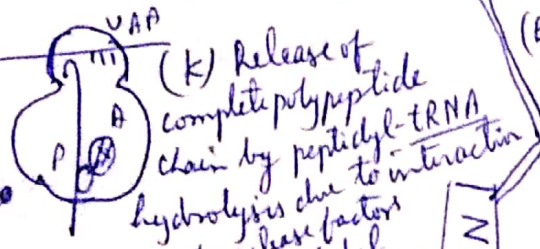 UAA
(K) Release of
complete polypeptide
A
P
chain by peptidyl-tRNA
hydrolysis due to interaction
release factors
N